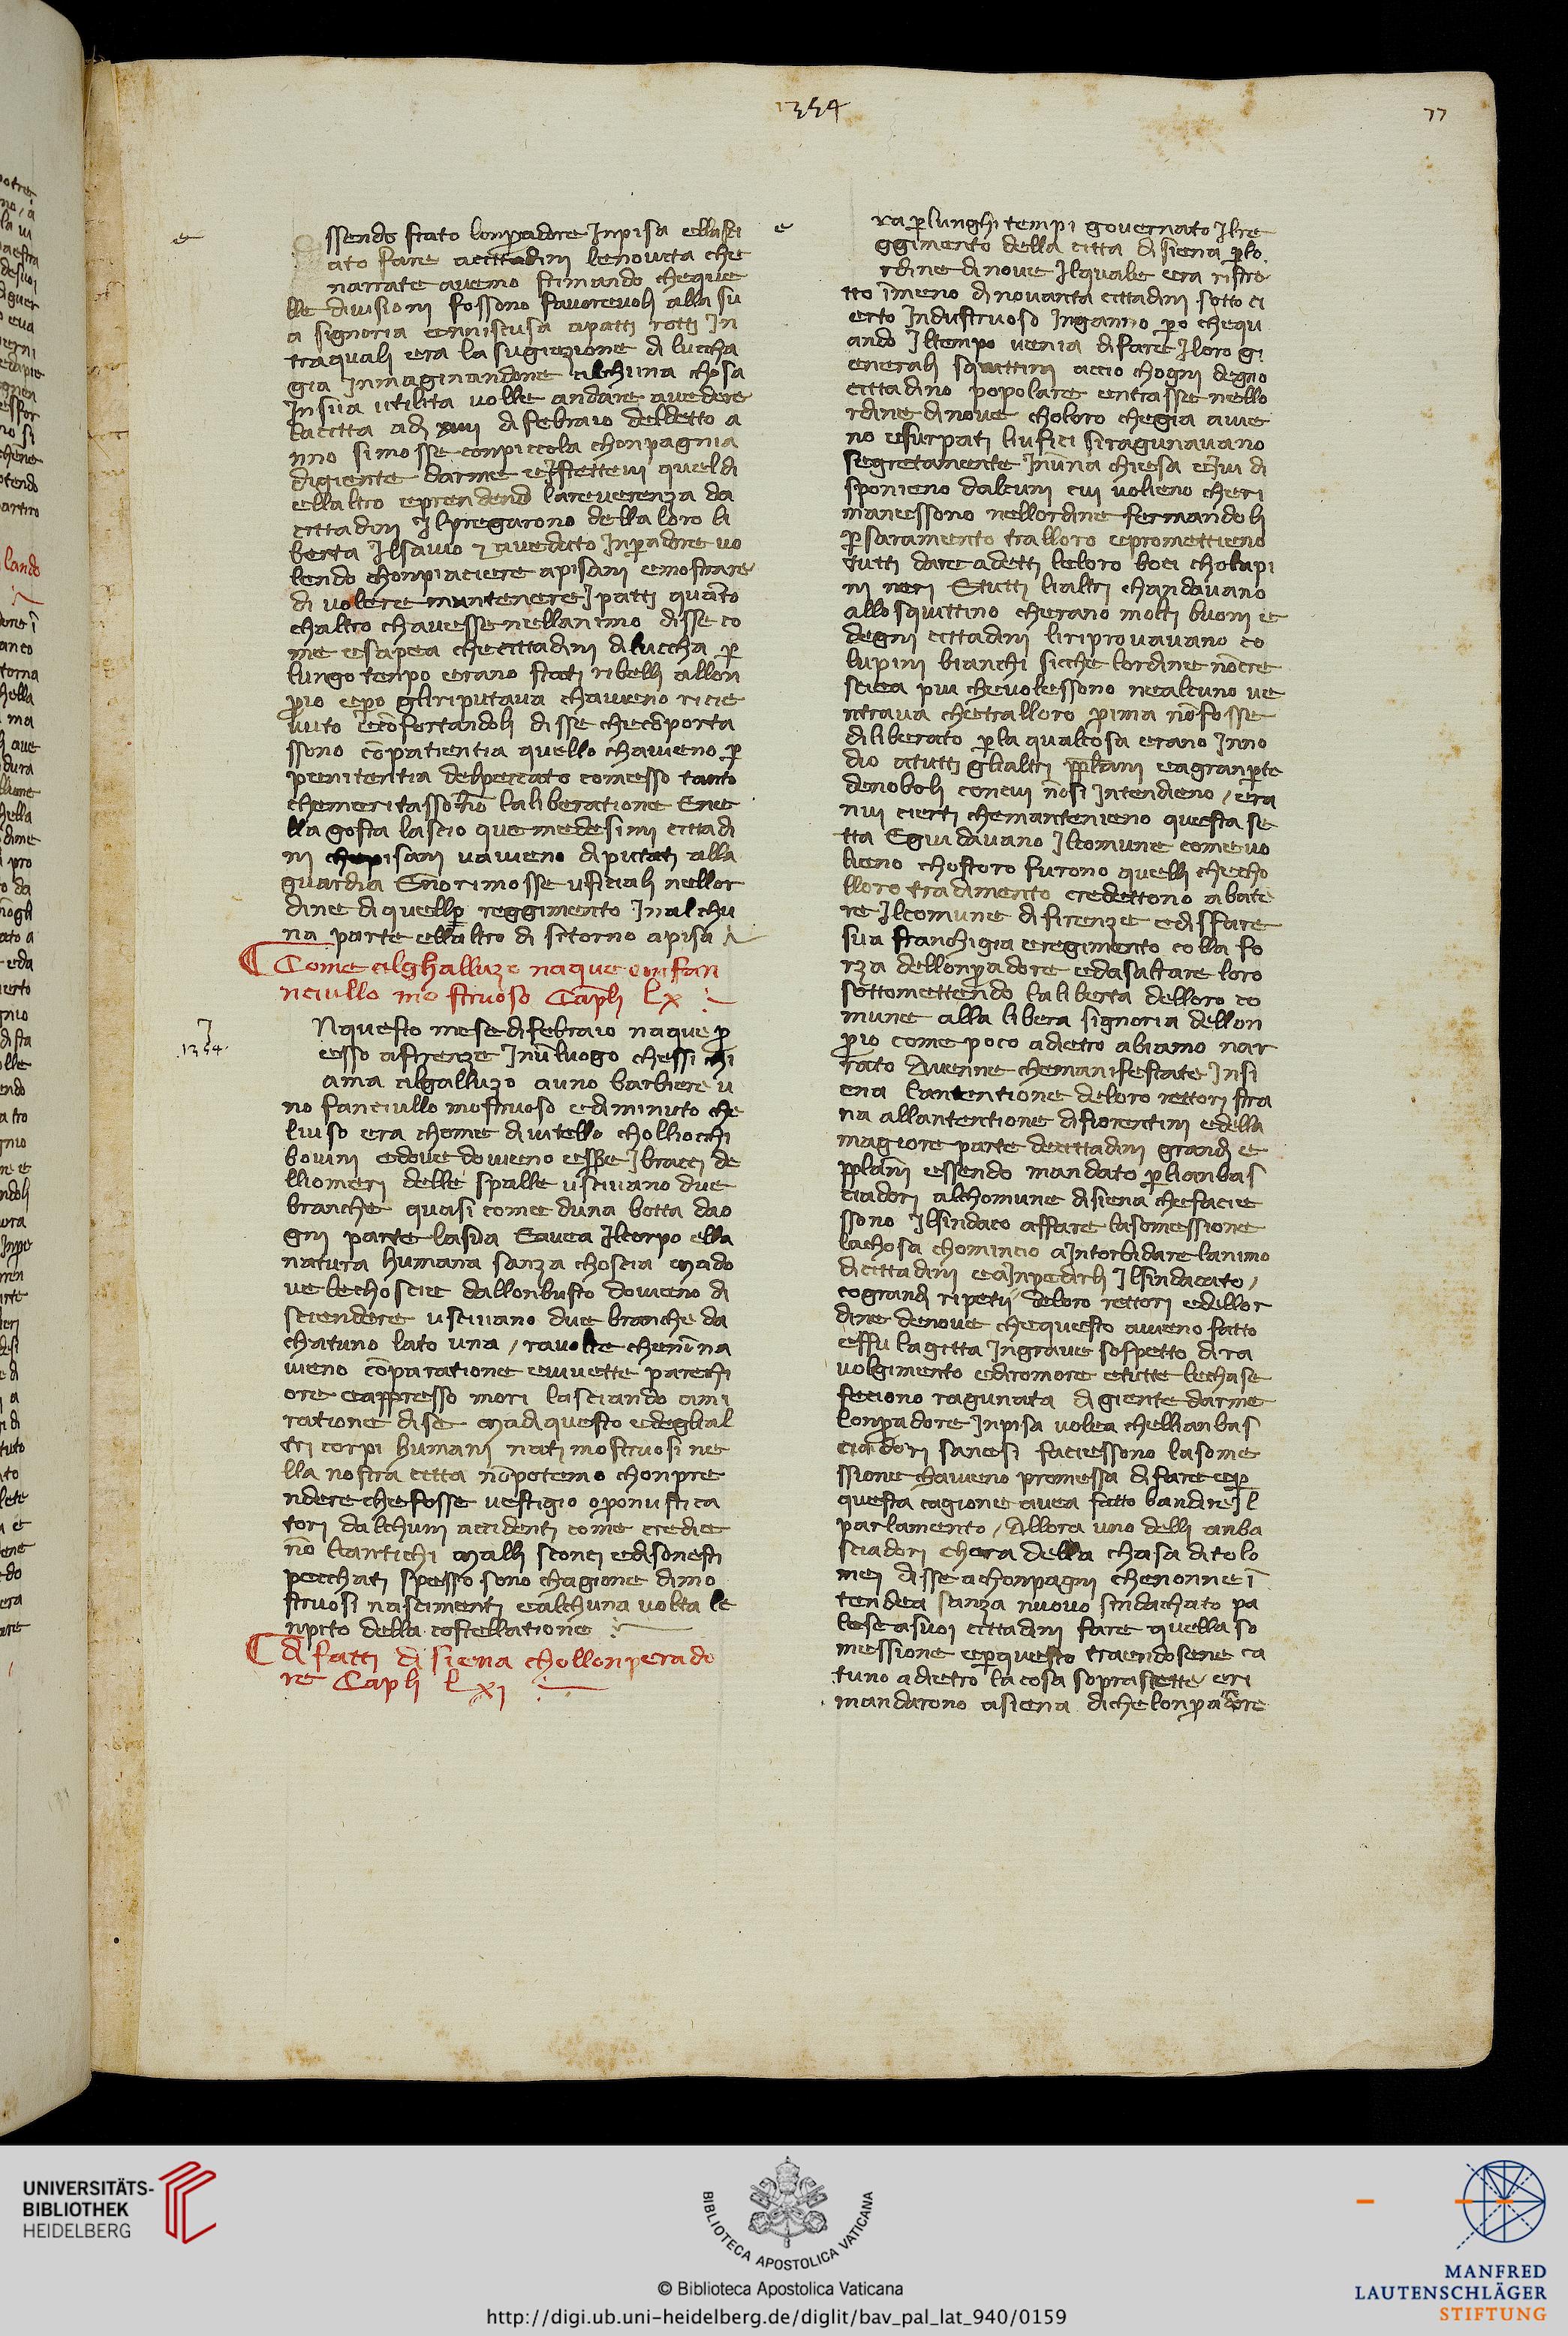 1354
77
e
ssendo stato lonpadore Inpisa ellasci
ato fare accittadini lenovita che
narrate avemo stimando cheque
lle divisioni fossono favorevoli alla su
a signoria enniscusa apatti rotti In
traquali era la sugiezione di luccha
gia Inmaginandone alchuna chosa
Insua utilita volle andare avedere
lacitta adi xiiii di febraio deldetto a
nno simosse conpiccola chonpagnia
digiente darme eistettevi queldi
ellaltro eprendend lareverenza da
cittadini Ilpregarono della loro li
berta Ilsavio 7 avedecto Inpadore vo
lendo chonpiaciere apisani emostrare
di volere mantenere I patti quāto
chaltro chavesse nellanimo disse co
me esapea checittadini di luccha p
lungo tenpo erano stati ribelli allon
pio epo gliriputava chavieno ricie
vuto ecōfortandoli disse checōporta
ssono cōpatientia quello chavieno p
penitentia delpeccato comesso tanto
chemeritasso nō laliberatione Ene
lla gosta lascio que medesimi cittadi
ni chepisani vavieno diputati alla
guardia Enōrimosse uficiali nellor
dine di quellp reggimento Inalchu
na parte ellaltro di sitorno apisa
Come alghalluzo naque un fan
nciullo mostruoso Capli lx
I
1354
Nquesto mese di febraio naque p
esso afirenze Inūluogo chessi chi
ama algalluzo auno barbiere u
no fanciullo mostruoso edi minuto che
liviso era chome di vitello cholliocchi
bovini edove dovieno essere I bracci de
lliomeri delle spalle uscivano due
branche quasi come duna botta dao
gni parte lasua Eavea Ilcorpo ella
natura humana sanza choscia Mado
ve lechoscie dallonbusto dovieno di
sciendere uscivano due branche da
chatuno lato una / ravolte chenōna
vieno cōparatione evivette parechi
ore eappresso mori lasciando ami
ratione dise Madi questo edeglial
tri corpi humani nati mostruosi ne
lla nostra citta nōpotemo chonpre
ndere chefosse vestigio oponustica
tori dalchuni accidenti come credie
nō liantichi Malli sconci edisonesti
pecchati spesso sono chagione dimo
struosi nascimenti ealchuna volta le
npito della costellatione
di fatti di siena chollonperado
re Capli lxi
e
ra plunghi tempi governato Ilre
ggimento della citta di siena plo
rdine dinove Ilquale era ristre
tto īmeno di novanta cittadini sotto ci
erto Industruoso Inganno po chequ
ando Iltempo venia di fare I loro gi
enerali squittini accio chogni degno
cittadino popolare entrasse nello
rdine dinove choloro chegia avie
no esurpati liufici siragunavano
segretamente Inūna chiesa eivi di
sponieno dalcuni cui volieno cheri
manessono nellordine fermandoli
p saramento tralloro eprometieno
tutti dare adetti leloro boci cholupi
ni neri Etutti lialtri chandavano
allo squittino cherano molti buoni e
degni cittadini liriprovavano co
lupini bianchi sicche lordine nōcre
sciea piu chevolessono nealcuno ve
ntrava chetralloro pima nōfosse
diliberato pla qualcosa erano Inno
dio atutti glialtri pplani eagranpte
denoboli concui nōsi Intendieno / era
nvi cierti chemantenieno questa se
tta Eguidavano Ilcomune comevo
lieno chostoro furono quelli checho
lloro tradimento credettono abate
re Ilcomune di firenze edisfare
sua franchigia eregimento colla fo
rza dellonpadore edasaltare loro
sottomettendo laliberta delloro co
mune alla libera signoria dellon
pio come poco adietro abiamo nar
rato Avenne chemanifestate Insi
ena lantentione deloro rettori stra
na allantentione difiorentini edella
magiore parte decittadini grandi e
pplani essendo mandato plianbas
ciadori alchomune di siena chefacie
ssono Ilsindaco affare lasomessione
lachosa chomincio aIntorbidare lanimo
dicittadini eaInpedirli Ilsindacato /
cogrand ripetii deloro rettori edellor
dine denove chequesto avieno fatto
effu lacitta Ingrave sospetto dira
volgimento edromore etutte lechase
feciono ragunata di giente darme
lonpadore Inpisa volea chellianbas
ciadori sanesi faciessono lasome
ssione chavieno promessa di fare eep
questa cagione avea fatto bandire Il
parlamento / Allora uno delli anba
sciadori chera della chasa ditolo
mei disse achonpagni chenonne ī
tendea sanza nuovo sindachato pa
lese asuoi cittadini fare quella so
messione eepquesto traendosene ca
tuno adietro la cosa soprastette eri
mandarono asiena dichelonpadore
UNIVERSITÄTS-
BIBLIOTHEK
HEIDELBERG
BIBLIOTECA APOSTOLICA VATICANA
© Biblioteca Apostolica Vaticana
http://digi.ub.uni-heidelberg.de/diglit/bav_pal_lat_940/0159
MANFRED
LAUTENSCHLÄGER
STIFTUNG